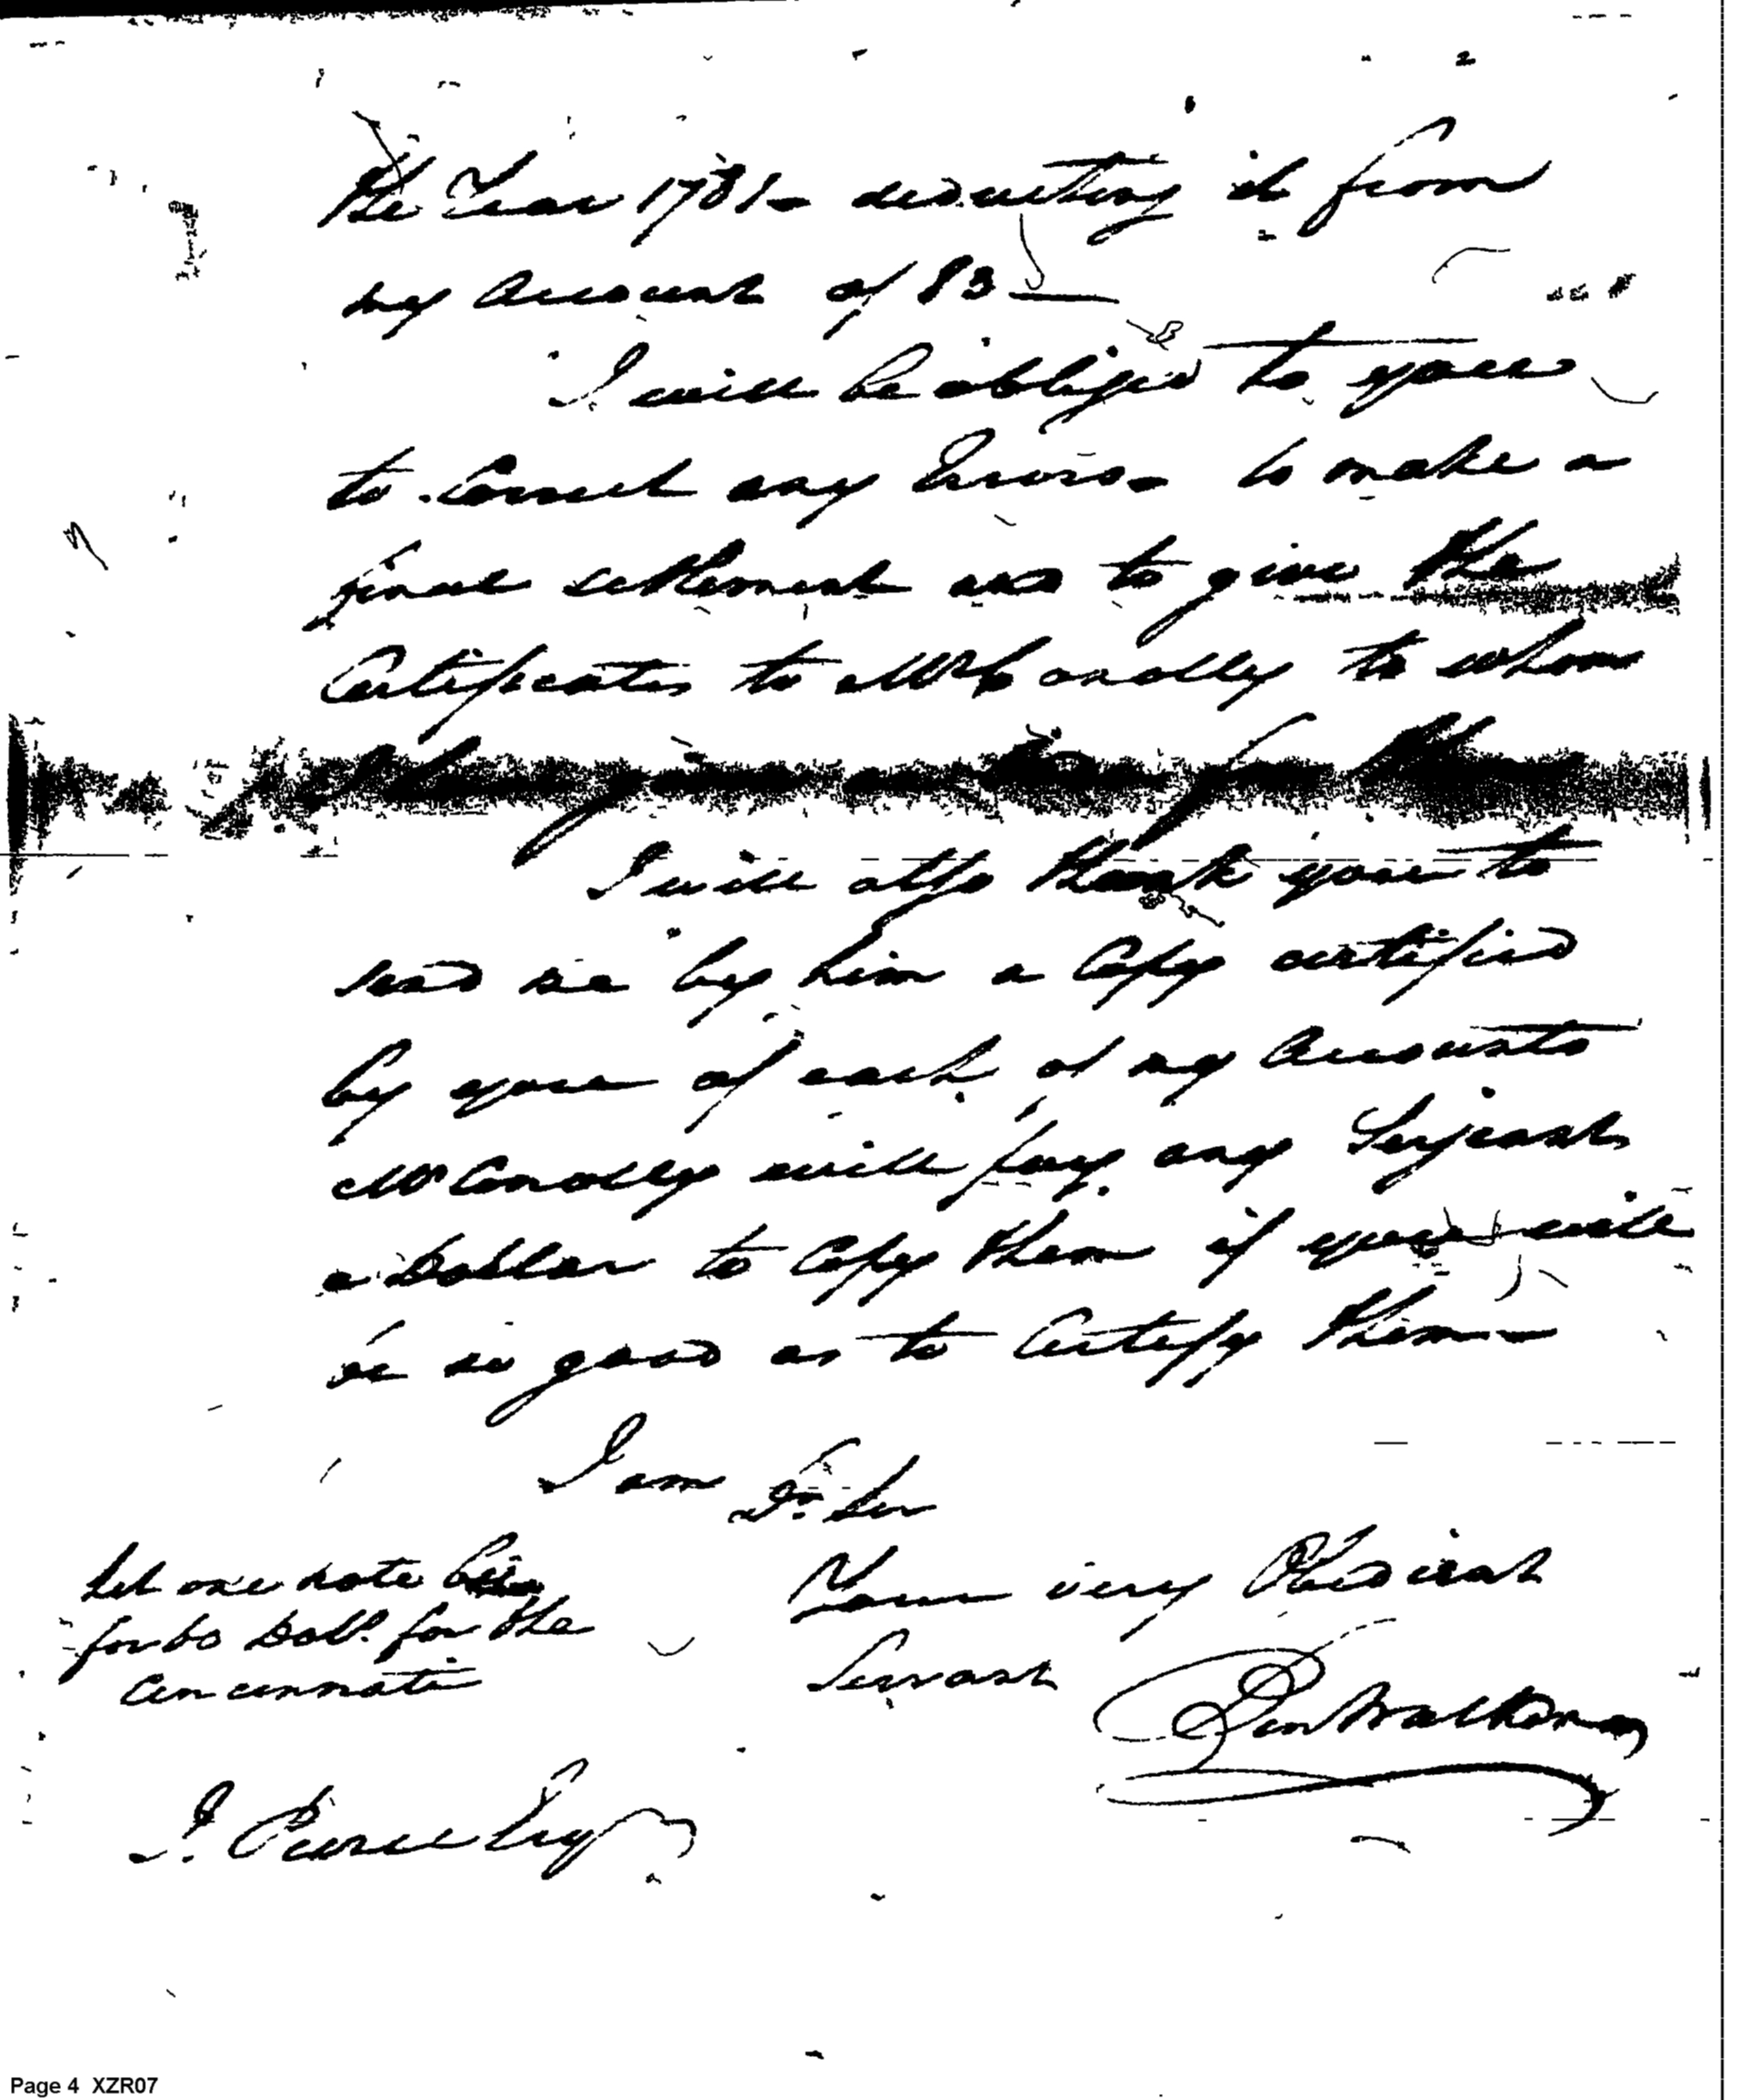 the Year 1781 – deducting it from
my Account of 83 —
I will be obliged to you
to Correct any Errors – to make a
final settlement and to give the
Certificates to Mr Conolly to whom
I have given an Order for them
I will also thank you to
send me by him a Copy certified
by you of each of my Accounts
Mr Conolly will pay any Serjeant
a Dollar to Copy them if you will
be so good as to Certify them –
I am Dr. Sir
Your very Obedient
Servant
Ben Walker
Let one note be
for 60 Doll. for the
Cincinnati
J. Pierce Esqr
Page 4 XZR07